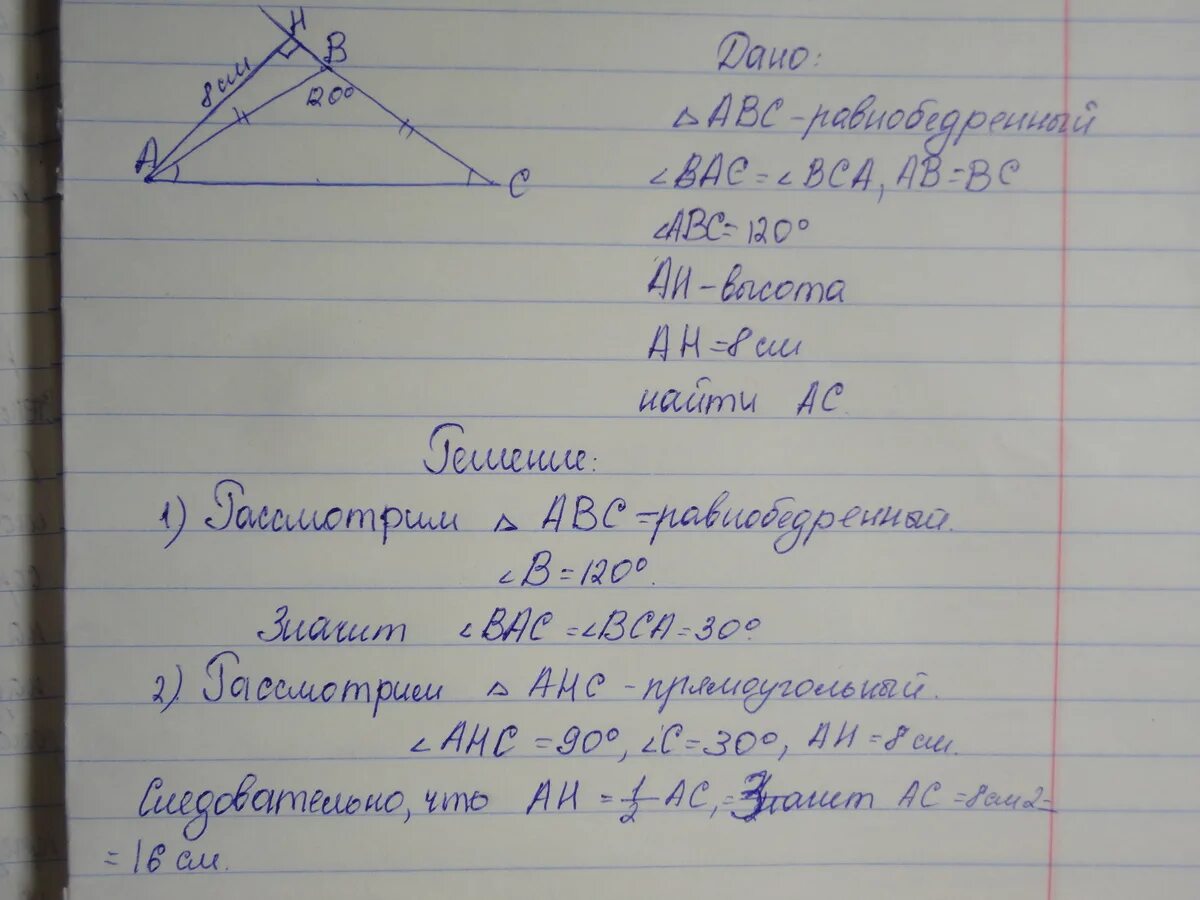 H
B
8 см
120°
A
C
Дано:
△ ABC - равнобедренный
∠BAC = ∠BCA, AB = BC
∠ABC = 120°
AH - высота
AH = 8 см
найти AC.
Решение:
1) Рассмотрим △ ABC - равнобедренный.
∠B = 120°.
Значит ∠BAC = ∠BCA = 30°.
2) Рассмотрим △ AHC - прямоугольный.
∠AHC = 90°, ∠C = 30°, AH = 8 см.
Следовательно, что AH = 1/2 AC, = Значит AC = 8 см 2 =
= 16 см.